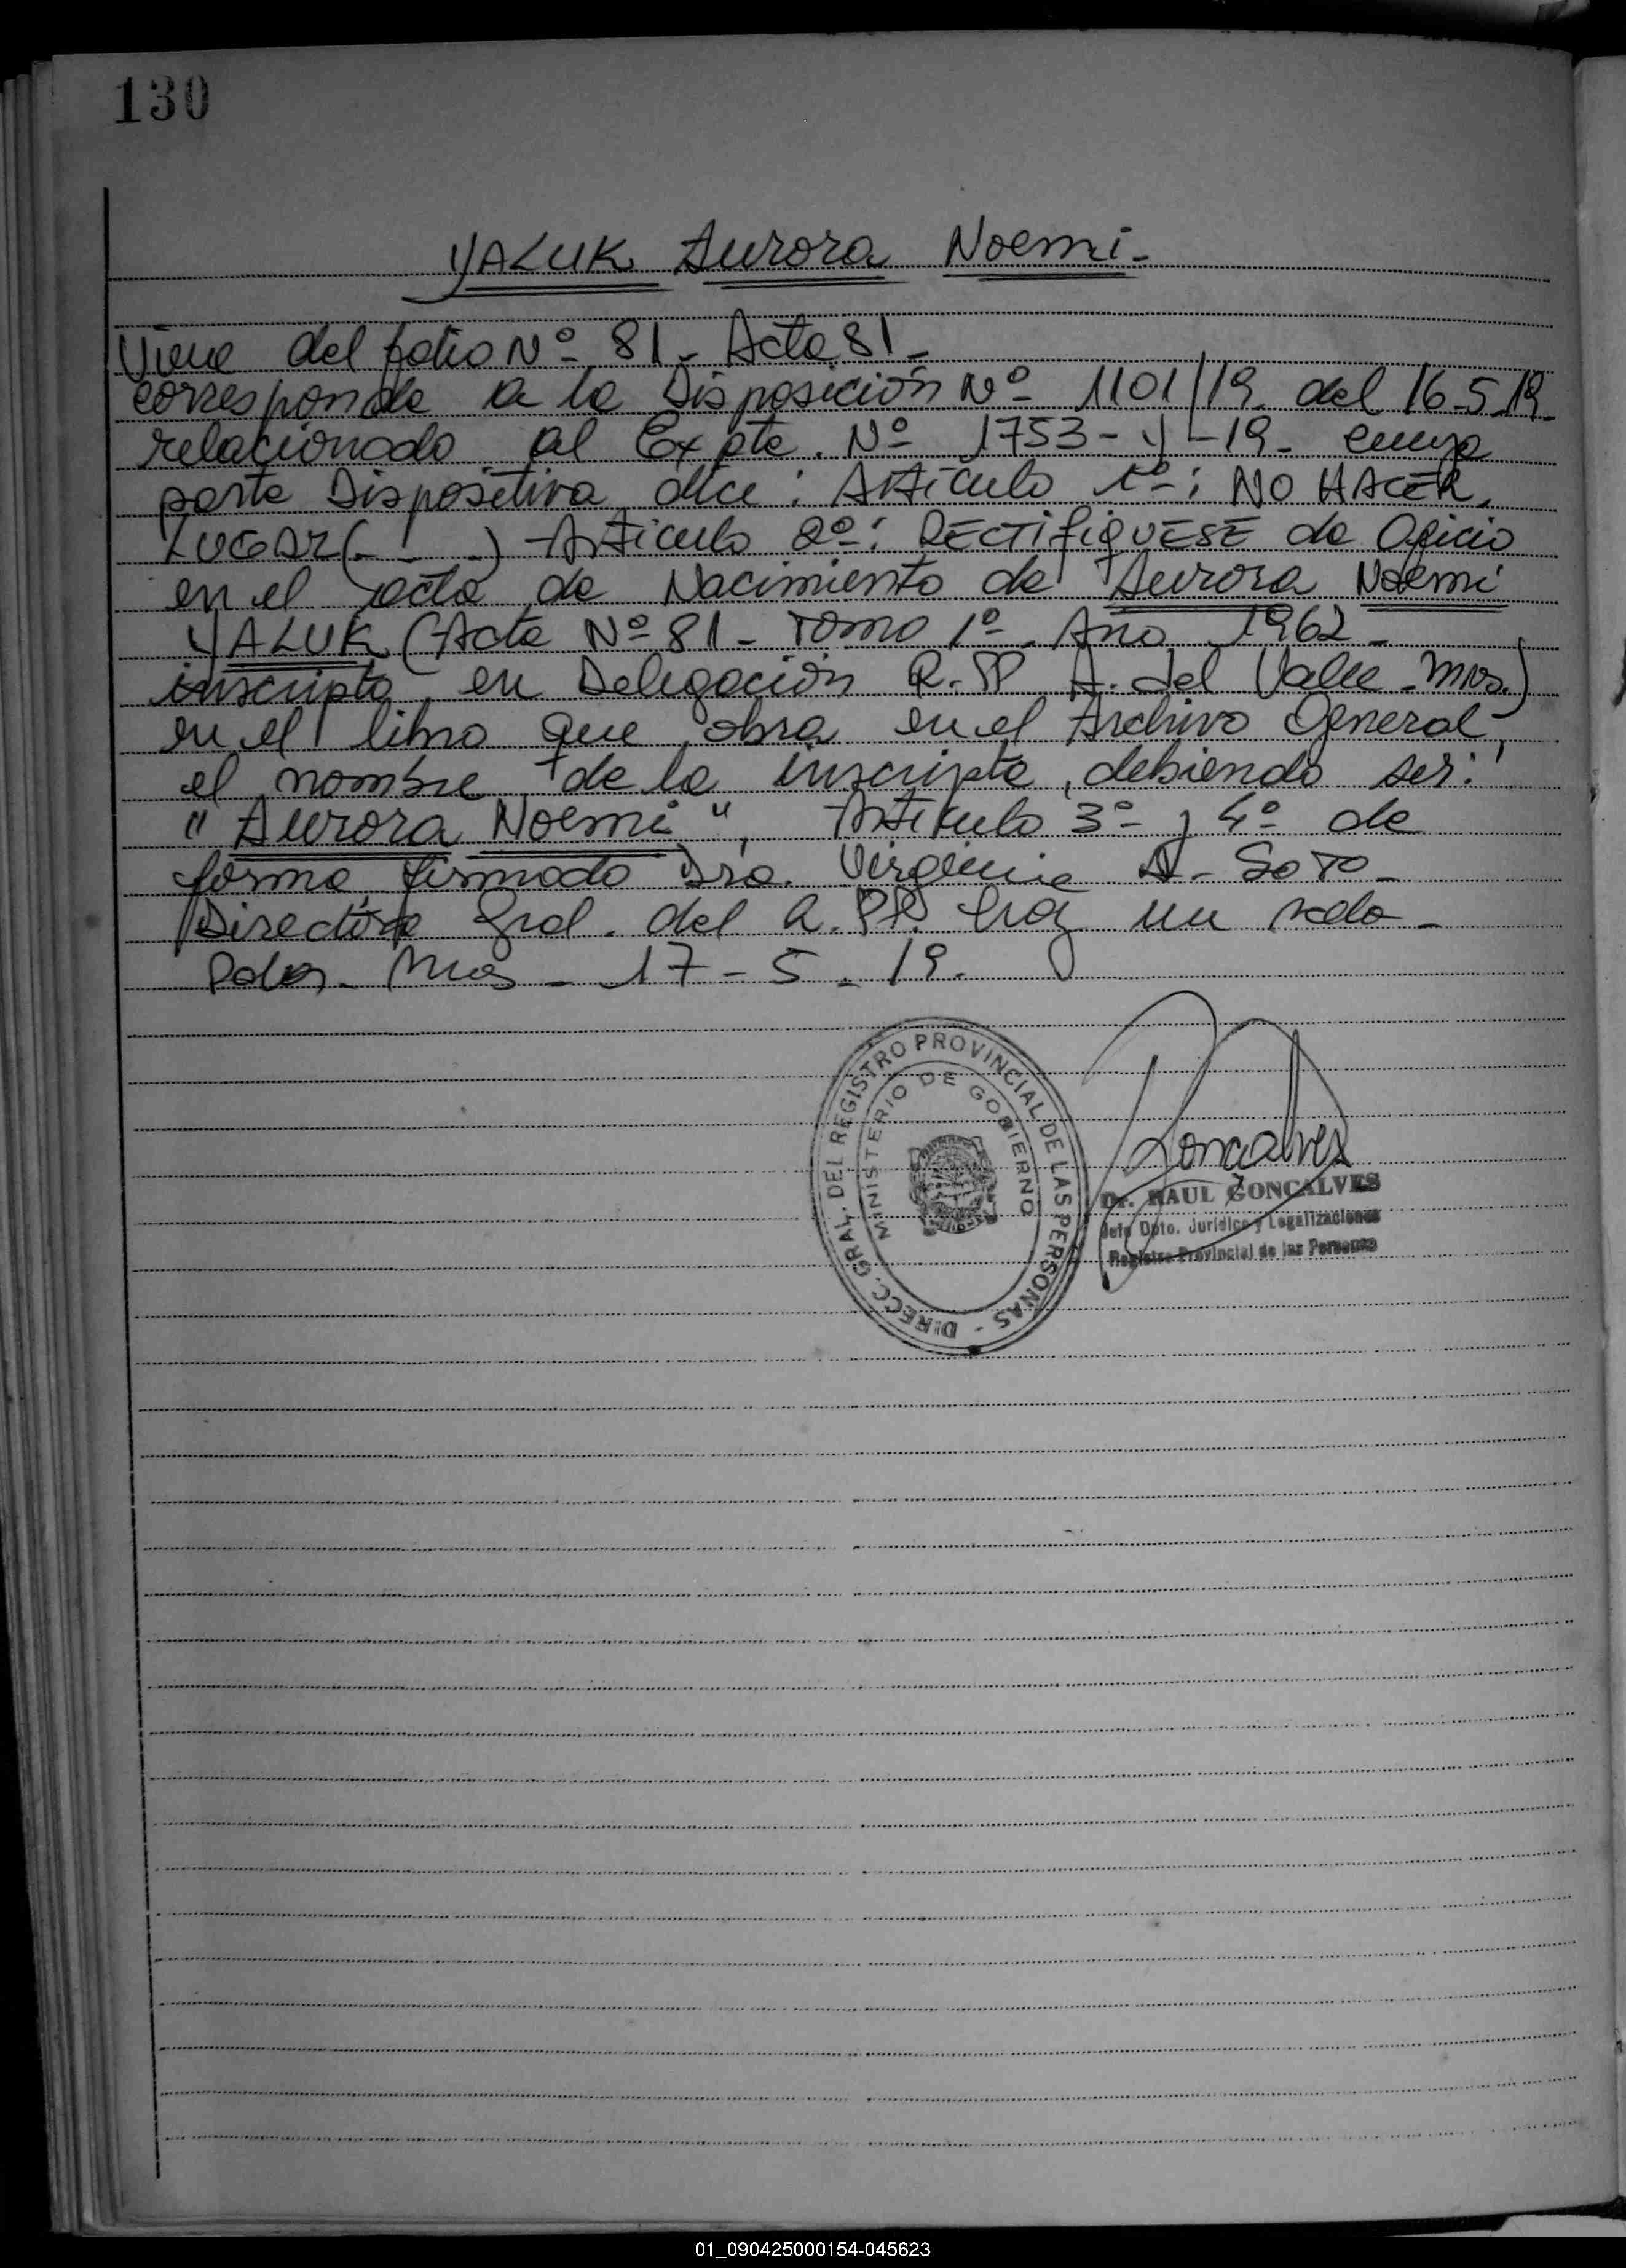 130
YALUK Aurora Noemi-
Viene del folio Nº 81- Acta 81-
corresponde a la Disposición Nº 1101/19. del 16-5-19-
relacionado al Expte. Nº 1753-Y-19- cuya
parte Dispositiva dice: Artículo 1º: NO HACER
LUGAR (- - -) Artículo 2º: RECTIFIQUESE de Oficio
en el acta de Nacimiento de Aurora Noemi
YALUK (Acta Nº 81- Tomo 1º- Año 1962-
inscripta en Delegación R.PP. A. del Valle-Mnes.)
en el libro que obra en el Archivo General,
el nombre de la inscripta, debiendo ser:
"Aurora Noemi", Artículo 3º y 4º de
forma, firmado Dra. Virginia A. SOTO-
Directora Gral. del R.PP. hay un sello-
Pdas. Mnes- 17-5-19.
DIRECC. GRAL. DEL REGISTRO PROVINCIAL DE LAS PERSONAS -
MINISTERIO DE GOBIERNO
Goncalves
Dr. RAUL GONCALVES
Jefe Dpto. Jurídico y Legalizaciones
Registro Provincial de las Personas
01_090425000154-045623